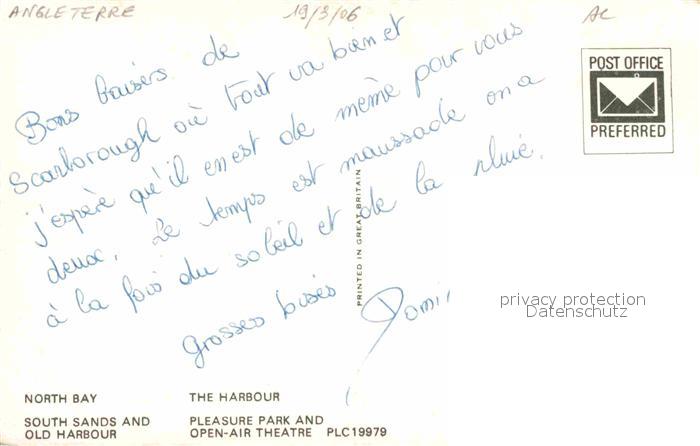 ANGLETERRE 19/3/06 AC
POST OFFICE
PREFERRED
Bons baisers de
Scarborough où tout va bien et
j'espère qu'il en est de même pour vous
deux. Le temps est maussade on a
à la fois du soleil et de la pluie.
grosses bises
PRINTED IN GREAT BRITAIN
privacy protection
Datenschutz
NORTH BAY THE HARBOUR
SOUTH SANDS AND PLEASURE PARK AND
OLD HARBOUR OPEN-AIR THEATRE PLC19979